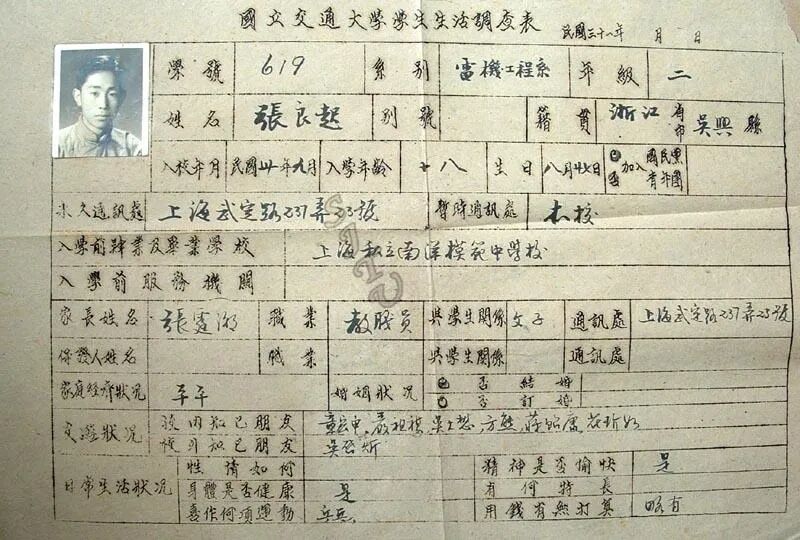 國立交通大學學生生活調查表 民國三十一年 月 日
學號 619 系別 電機工程系 年級 二
姓名 張良起 別號 籍貫 浙江 省市 吳興 縣
入校年月 民國卅一年九月 入學年齡 十八 生日 八月廿七日 已否加入國民黨青年團
永久通訊處 上海武定路237弄23號 暫時通訊處 本校
入學前肄業及畢業學校 上海私立南洋模範中學校
入學前服務機關
家長姓名 張 職業 教職員 與學生關係 父子 通訊處 上海武定路237弄23號
保證人姓名 職業 與學生關係 通訊處
家庭經濟狀況 平平 婚姻狀況 已否結婚
已否訂婚
交遊狀況 校內知己朋友
校外知己朋友 吳
日常生活狀況 性情如何 精神是否愉快 是
身體是否健康 是 有何特長
喜作何項運動 乒乓 用錢有無打算 略有